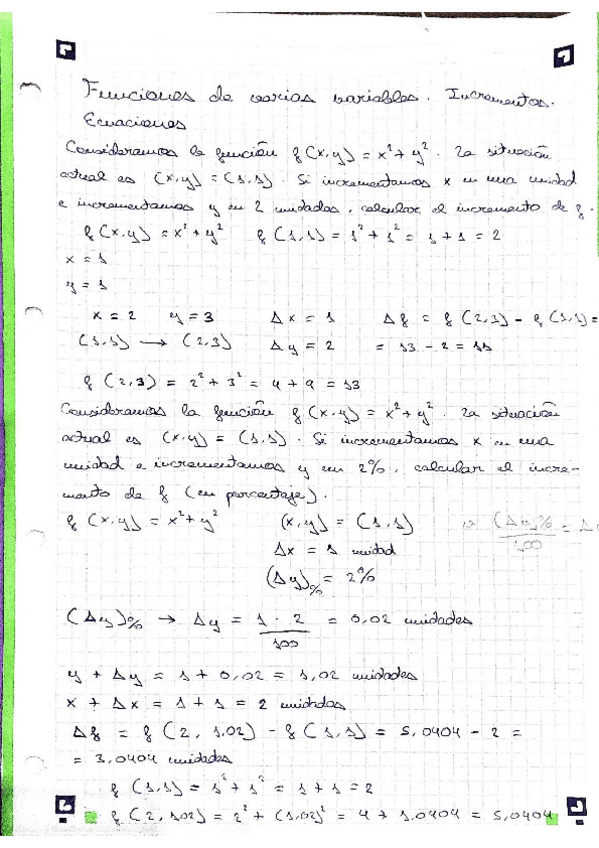 Funciones de varias variables. Incrementos.
Ecuaciones
Consideramos la función f(x,y) = x² + y². La situación
actual es (x,y) = (1,1). Si incrementamos x en una unidad
e incrementamos y en 2 unidades, calcular el incremento de f.
f(x,y) = x² + y² f(1,1) = 1² + 1² = 1 + 1 = 2
x = 1
y = 1
x = 2 y = 3 Δx = 1 Δf = f(2,3) - f(1,1) =
(1,1) → (2,3) Δy = 2 = 13 - 2 = 11
f(2,3) = 2² + 3² = 4 + 9 = 13
Consideramos la función f(x,y) = x² + y². La situación
actual es (x,y) = (1,1). Si incrementamos x en una
unidad e incrementamos y en 2%, calcular el incre-
mento de f (en porcentaje).
f(x,y) = x² + y² (x,y) = (1,1) (Δy)% =
Δx = 1 unidad 100
(Δy)% = 2%
(Δy)% → Δy = 1·2/100 = 0,02 unidades
y + Δy = 1 + 0,02 = 1,02 unidades
x + Δx = 1 + 1 = 2 unidades
Δf = f(2, 1,02) - f(1,1) = 5,0404 - 2 =
= 3,0404 unidades
f(1,1) = 1² + 1² = 1 + 1 = 2
f(2, 1,02) = 2² + (1,02)² = 4 + 1,0404 = 5,0404